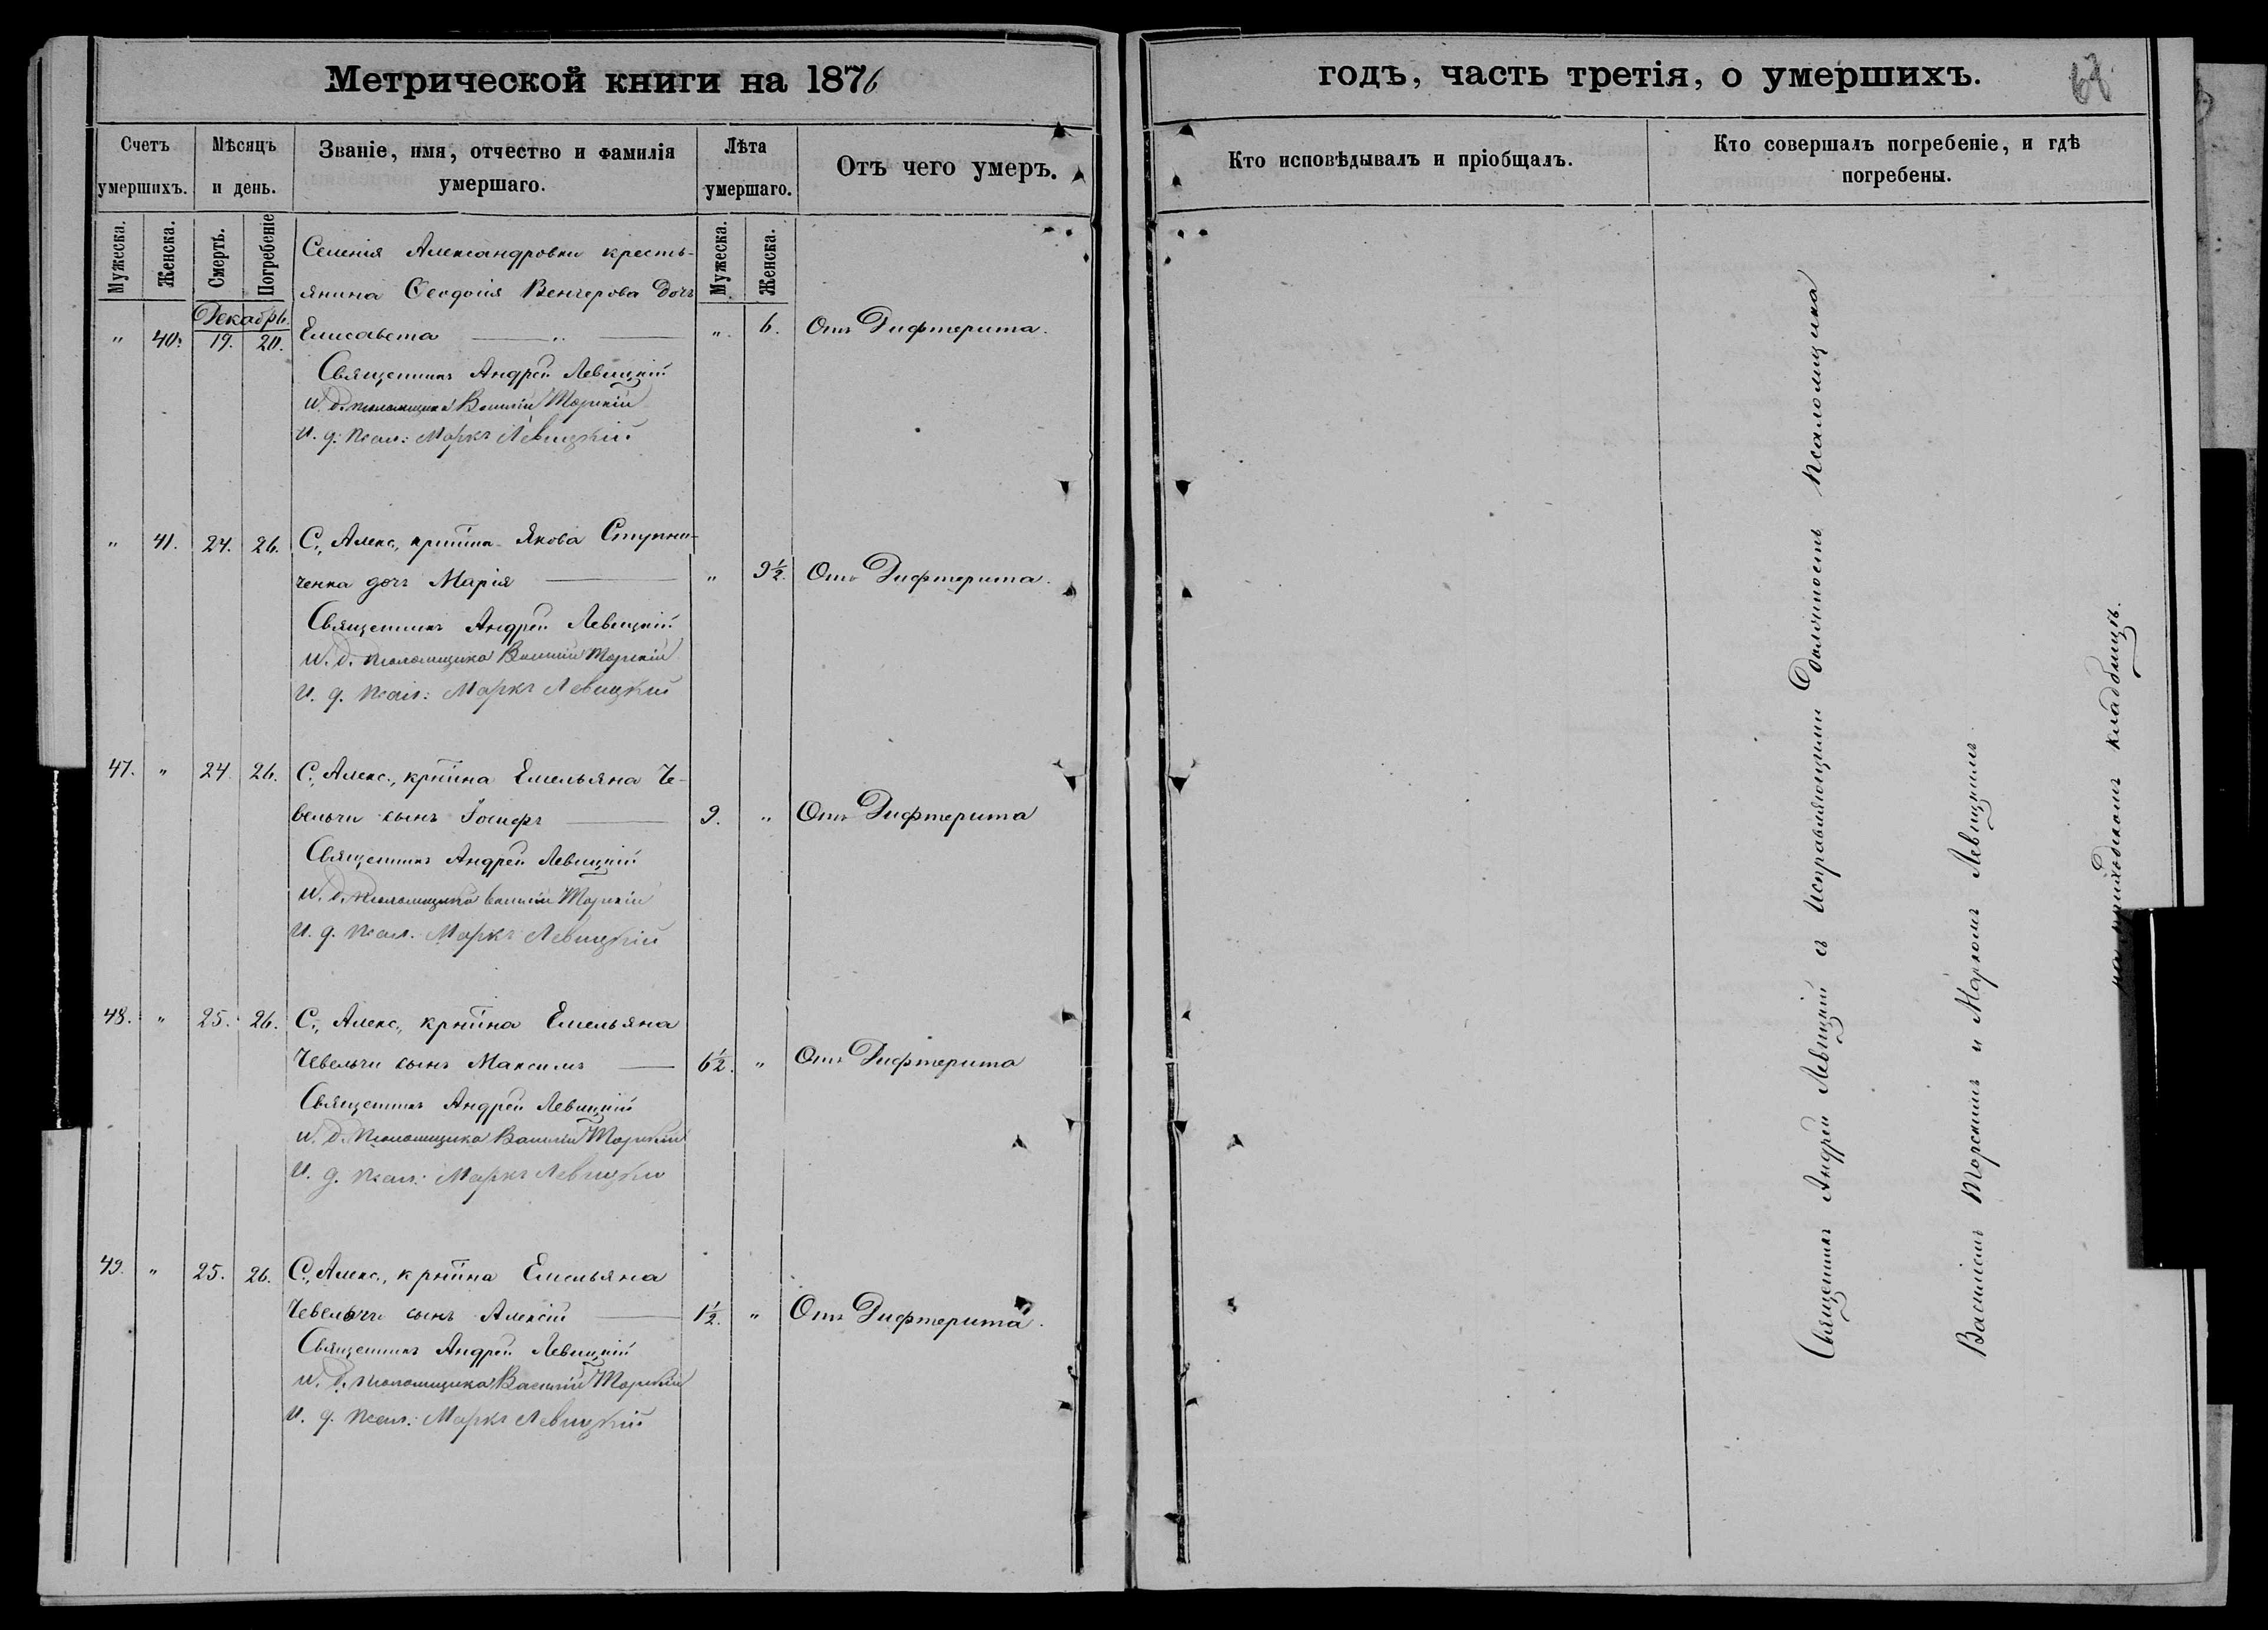 Метрической книги на 1876
годъ, часть третія, о умершихъ.
68
Счетъ умершихъ.
Мѣсяцъ и день.
Званіе, имя, отчество и фамилія умершаго.
Лѣта умершаго.
Отъ чего умеръ.
Кто исповѣдывалъ и пріобщалъ.
Кто совершалъ погребеніе, и гдѣ погребены.
Мужеска.
Женска.
Смерть.
Погребеніе
Мужеска.
Женска.
Селенія Александровки кресть-
янина Ѳеодосія Венгерова дочь
Декабрь.
" 40. 19. 20. Елисавета " 6. Отъ Дифтерита.
Священникъ Андрей Левицкій
И. д. псаломщика Василій Торскій
И. д. псал: Маркъ Левицкій
" 41. 24. 26. С., Алекс., крнина Якова Ступни-
ченка дочь Марія " 9½. Отъ Дифтерита.
Священникъ Андрей Левицкій
И. д. псаломщика Василій Торскій
И. д. псал: Маркъ Левицкій
47. " 24. 26. С., Алекс., крнина Емельяна Че-
вельчи сынъ Іосифъ 9. " Отъ Дифтерита
Священникъ Андрей Левицкій
И. д. псаломщика Василій Торскій
И. д. псал. Маркъ Левицкій
48. " 25. 26. С., Алекс., крнина Емельяна
Чевельчи сынъ Максимъ 6½. " Отъ Дифтерита
Священникъ Андрей Левицкій
И. д. псаломщика Василій Торскій
И. д. псал: Маркъ Левицкій
49. " 25. 26. С., Алекс., крнина Емельяна
Чевельчи сынъ Алексій 1½. " Отъ Дифтерита.
Священникъ Андрей Левицкій
И. д. псаломщика Василій Торскій
И. д. псал: Маркъ Левицкій
Священникъ Андрей Левицкій съ исправляющими должность псаломщика
Василіемъ Торскимъ и Маркомъ Левицкимъ.
на приходскомъ кладбищѣ.